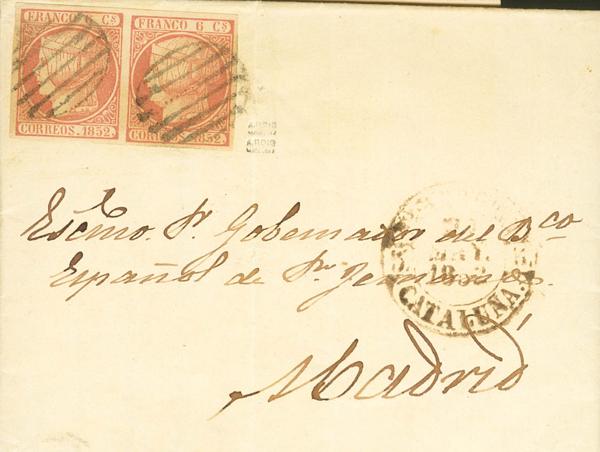 FRANCO 6 CS
FRANCO 6 CS
CORREOS. 1852.
CORREOS. 1852.
A. ROIG
A. ROIG
Escmo. Sr. Gobernador del Bco
Español de Sn. Fernando.
Madrid
1852
CATALUÑA.